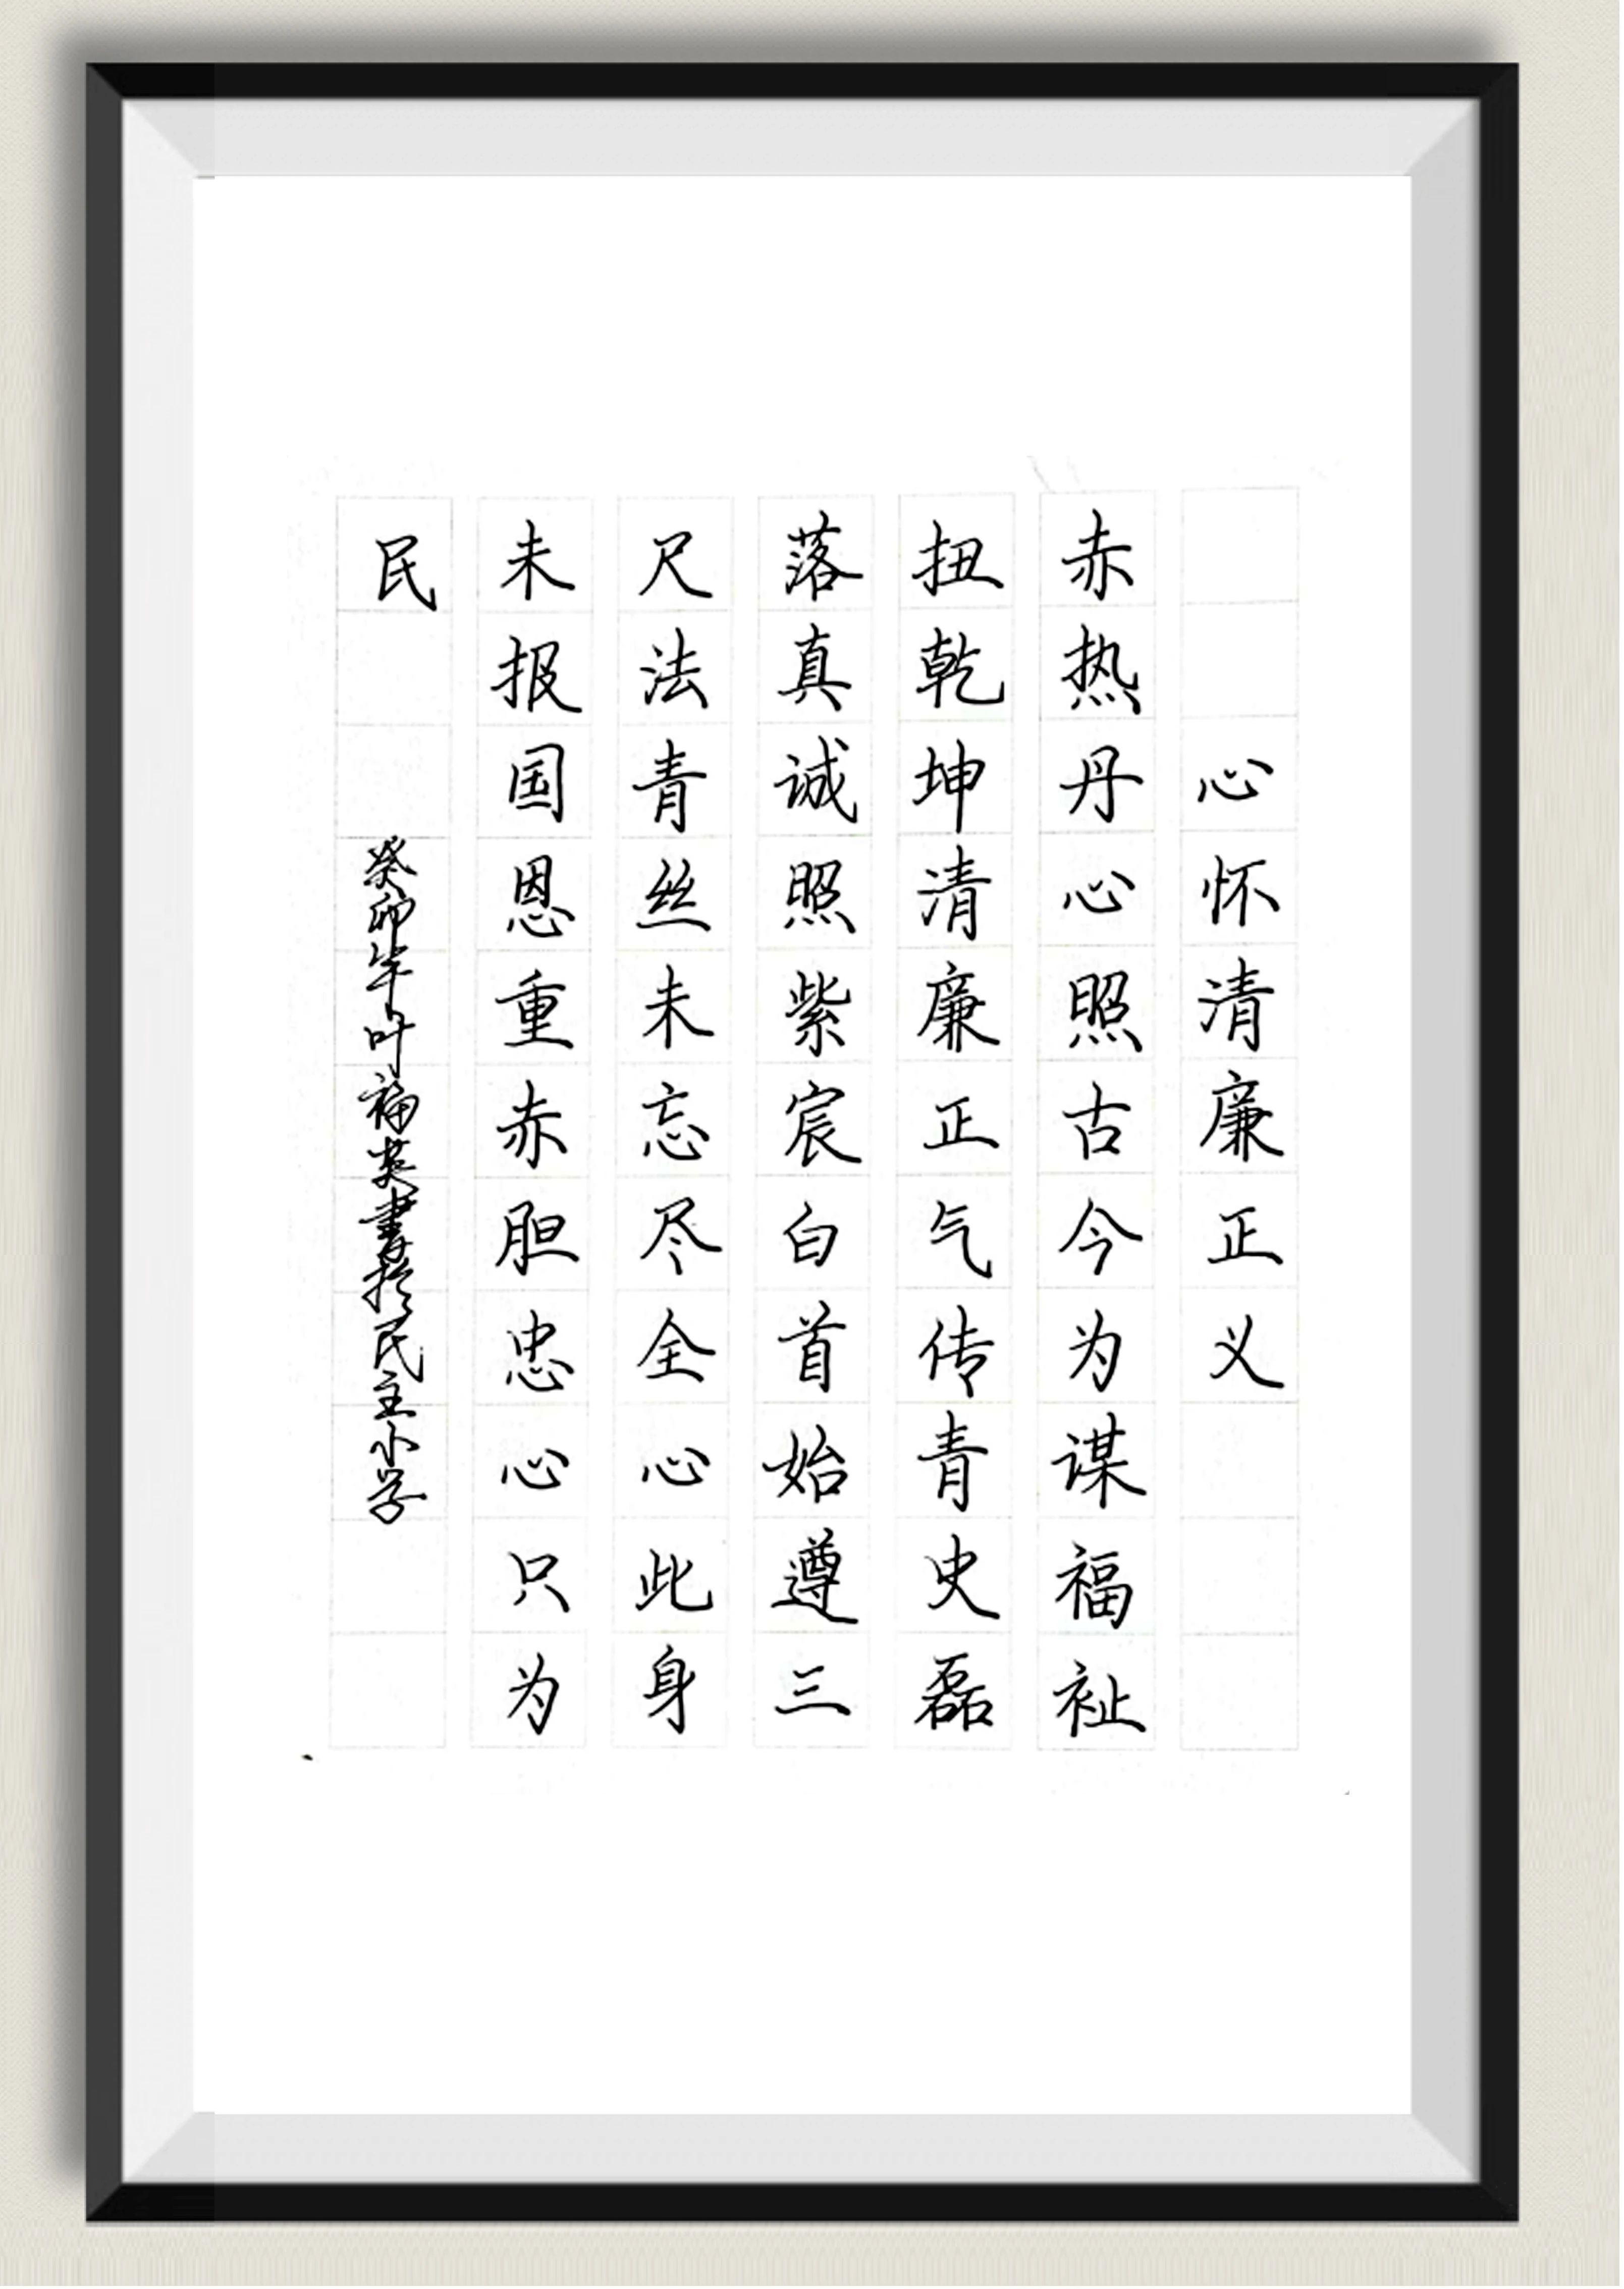 心怀清廉正义
赤热丹心照古今为谋福祉
扭乾坤清廉正气传青史磊
落真诚照紫宸白首始遵三
尺法青丝未忘尽全心此身
未报国恩重赤胆忠心只为
民
癸卯年叶福英書於民主小学